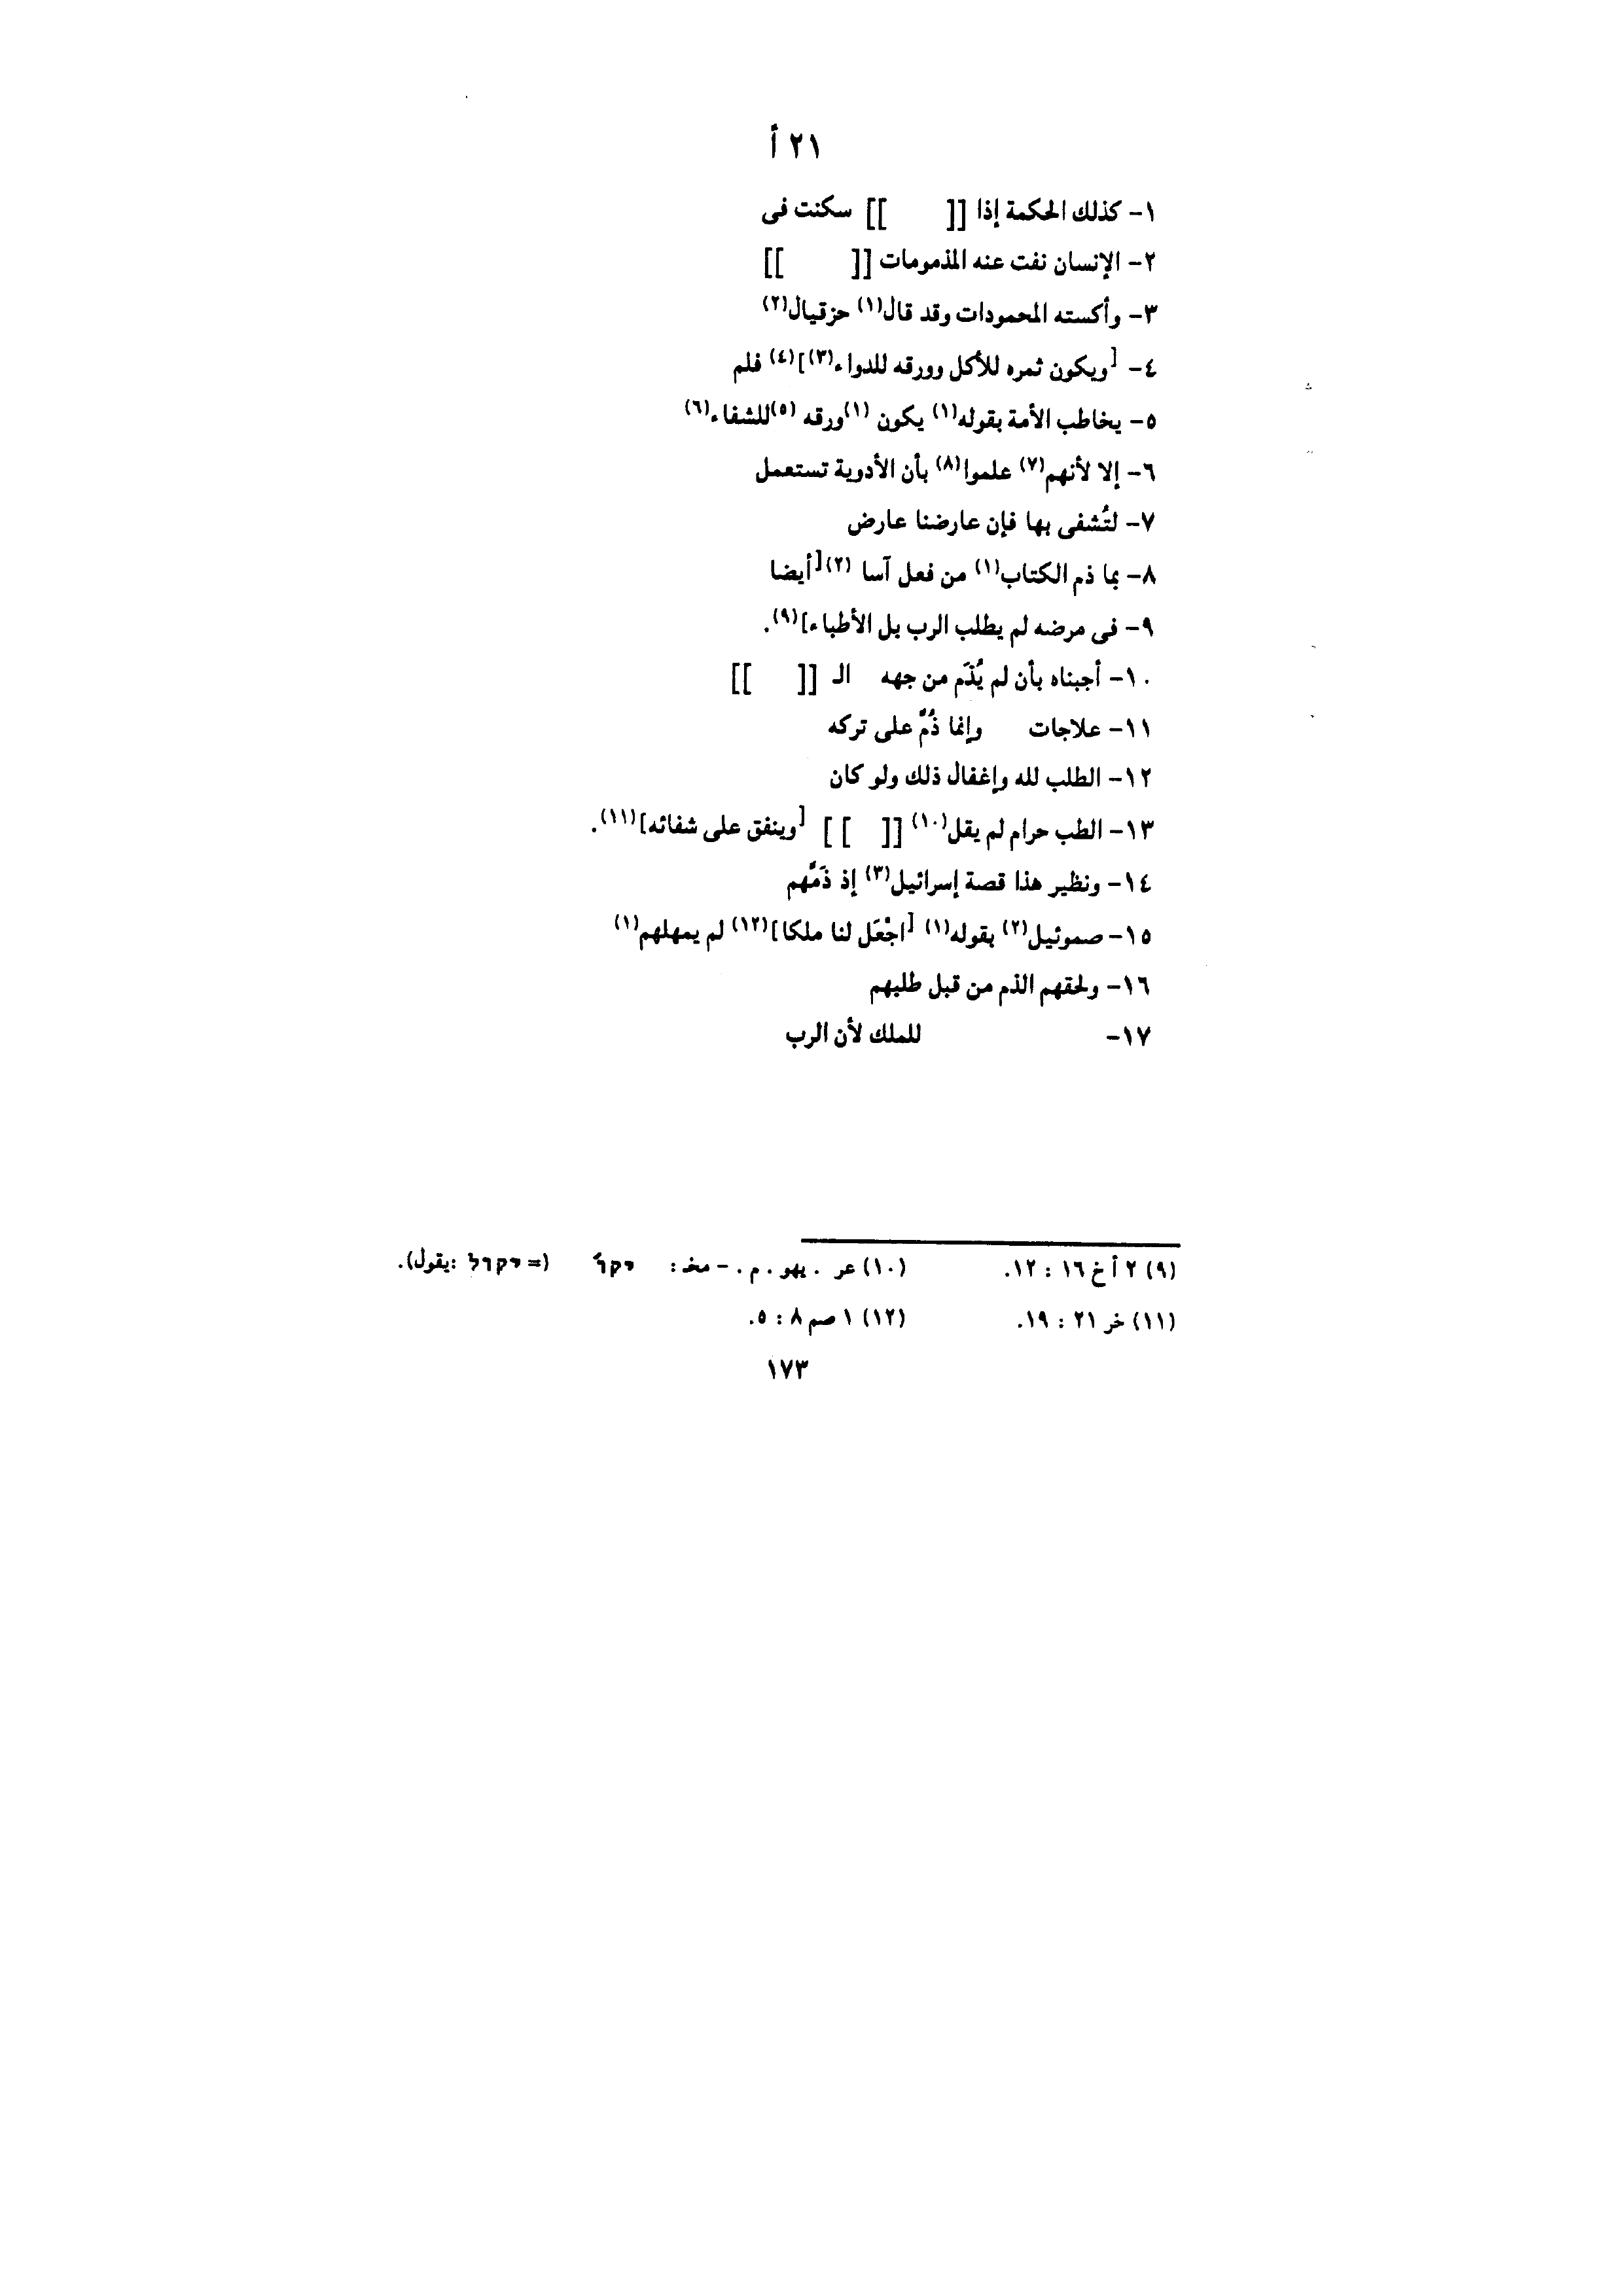 ٢١ أ
١- كذلك الحكمة إذا [[ ]] سكنت فى
٢- الإنسان نفت عنه المذمومات [[ ]]
٣- وأكسته المحمودات وقد قال(١) حزقيال(٢)
٤- [ويكون ثمره للأكل وورقه للدواء(٣)](٤) فلم
٥- يخاطب الأمة بقوله(١) يكون (١)ورقه (٥)للشفاء(٦)
٦- إلا لأنهم(٧) علموا(٨) بأن الأدوية تستعمل
٧- لتُشفى بها فإن عارضنا عارض
٨- بما ذم الكتاب(١) من فعل آسا (٢)[أيضا
٩- فى مرضه لم يطلب الرب بل الأطباء](٩).
١٠- أجبناه بأن لم يُذَم من جهه الـ [[ ]]
١١- علاجات وإنما ذُمَّ على تركه
١٢- الطلب لله وإغفال ذلك ولو كان
١٣- الطب حرام لم يقل(١٠) [[ ] ] [وينفق على شفائه](١١).
١٤- ونظير هذا قصة إسرائيل(٣) إذ ذَمَّهم
١٥- صموئيل(٢) بقوله(١) [اجْعَل لنا ملكا](١٢) لم يمهلهم(١)
١٦- ولحقهم الذم من قبل طلبهم
١٧- للملك لأن الرب
(٩) ٢ أخ ١٦ : ١٢. (١٠) عر . يهو . م . - مخـ : יקל (= יקול :يقول).
(١١) خر ٢١ : ١٩. (١٢) ١ صم ٨ : ٥.
١٧٣